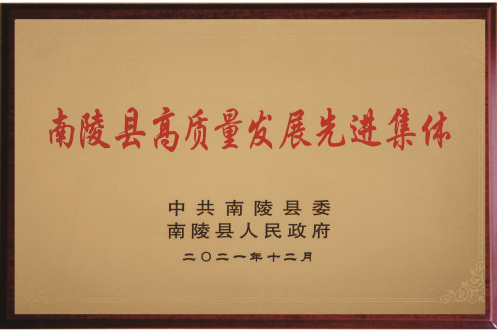 南陵县高质量发展先进集体
中共南陵县委
南陵县人民政府
二〇二一年十二月